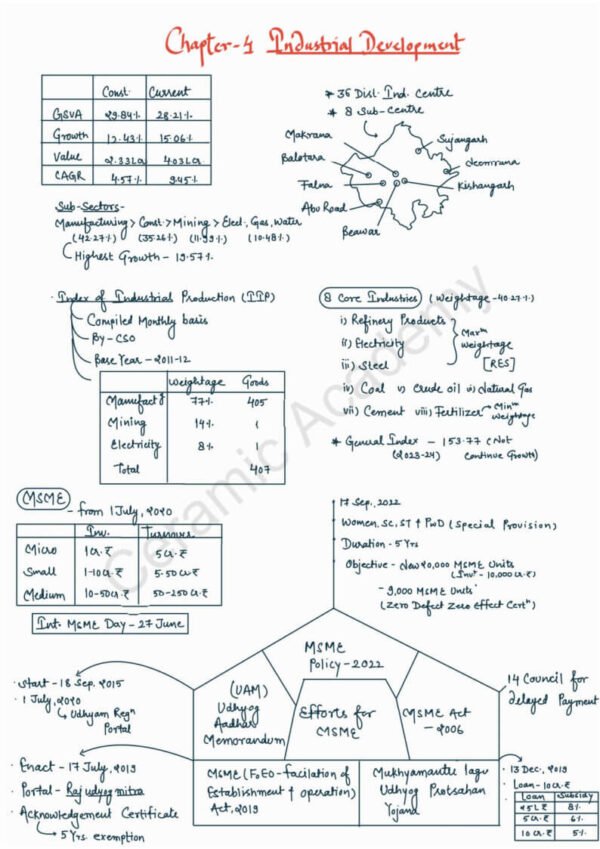 Chapter-4 Industrial Development
Const. Current
GSVA 29.84% 28.21%
Growth 12.43% 15.06%
Value 2.33La 4.03La
CAGR 4.57% 9.45%
* 36 Dist. Ind. Centre
* 8 Sub-Centre
Makrana
Balotara
Falna
Abu Road
Beawar
Sujangarh
Neemrana
Kishangarh
Sub-Sectors-
Manufacturing > Const. > Mining > Elect., Gas, Water
(42.27%) (35.26%) (11.99%) (10.48%)
Highest Growth - 19.57%
Index of Industrial Production (IIP)
Compiled Monthly basis
By - CSO
Base Year - 2011-12
Weightage Goods
Manufactg 77% 405
Mining 14% 1
Electricity 8% 1
Total 407
8 Core Industries (Weightage-40.27%)
i) Refinery Products
ii) Electricity
iii) Steel
Maxm Weightage
[RES]
iv) Coal v) Crude oil vi) Natural Gas
vii) Cement viii) Fertilizer → Minm Weightage
* General Index - 153.77 (Not
(2023-24) Continue Growth)
MSME
- from 1 July, 2020
Inv. Turnover
Micro 1 Cr. ₹ 5 Cr. ₹
Small 1-10 Cr. ₹ 5-50 Cr. ₹
Medium 10-50 Cr. ₹ 50-250 Cr. ₹
Int. MSME Day - 27 June
17 Sep., 2022
Women, SC, ST & PwD (Special Provision)
Duration - 5 Yrs
Objective - New 20,000 MSME Units
(Invt - 10,000 Cr. ₹)
- 9,000 MSME Units
(Zero Defect Zero Effect Certn)
MSME
Policy-2022
Start - 18 Sep. 2015
1 July, 2020
Udhyam Regn
Portal
(UAM)
Udhyog
Aadhar
Memorandum
Efforts for
MSME
MSME Act
-2006
14 Council for
delayed Payment
Enact - 17 July, 2019
Portal - Raj udyog mitra
Acknowledgement Certificate
5 Yrs. exemption
MSME (FoEO - facilation of
Establishment & operation)
Act, 2019
Mukhyamantri lagu
Udhyog Protsahan
Yojana
13 Dec., 2019
Loan - 10 Cr. ₹
Loan Subsidy
25L ₹ 8%
5 Cr ₹ 6%
10 Cr ₹ 5%
Ceramic Academy